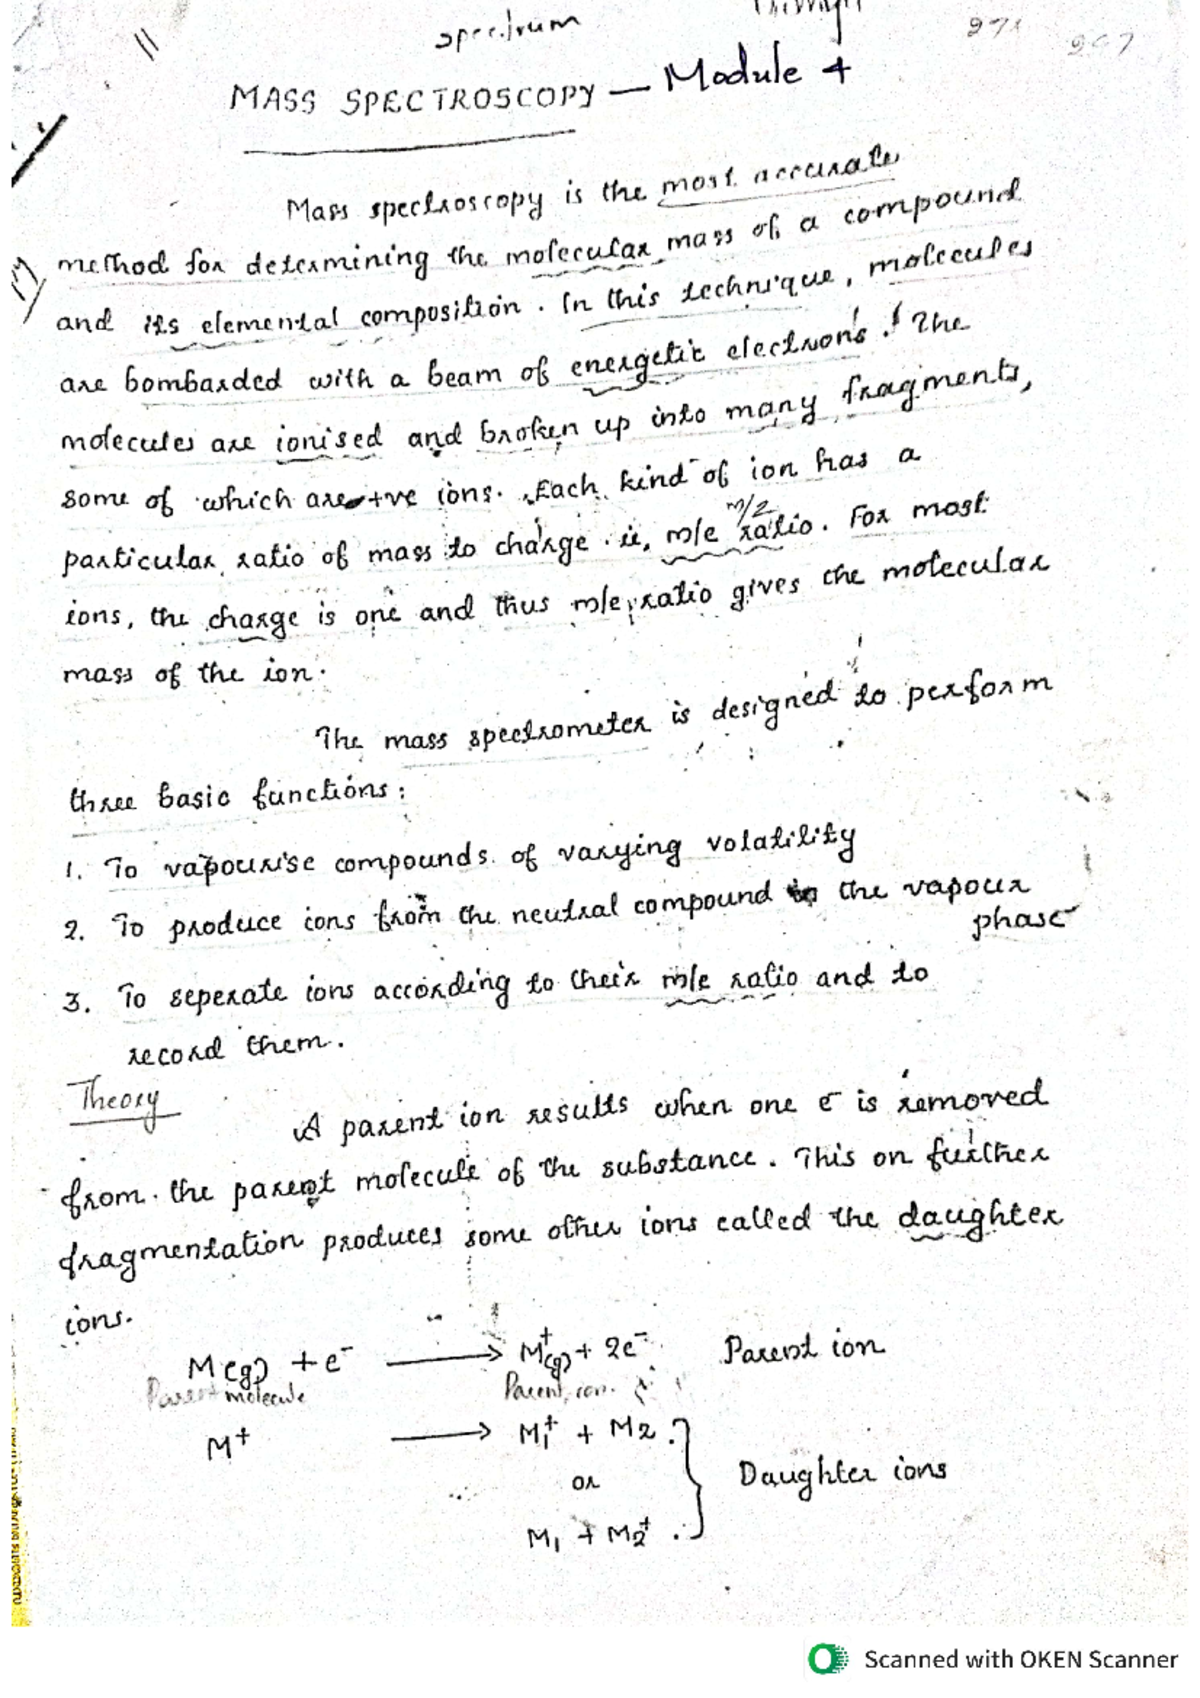 spectrum
MASS SPECTROSCOPY — Module 4
Mass spectroscopy is the most accurate
method for determining the molecular mass of a compound
and its elemental composition. In this technique, molecules
are bombarded with a beam of energetic electrons. The
molecules are ionised and broken up into many fragments,
some of which are +ve ions. Each kind of ion has a
m/z
particular ratio of mass to charge ie, m/e ratio. For most
ions, the charge is one and thus m/e ratio gives the molecular
mass of the ion.
The mass spectrometer is designed to perform
three basic functions:
1. To vapourise compounds of varying volatility
2. To produce ions from the neutral compound in the vapour
phase
3. To seperate ions according to their m/e ratio and to
record them.
Theory
A parent ion results when one e⁻ is removed
from the parent molecule of the substance. This on further
fragmentation produces some other ions called the daughter
ions.
M(g) + e⁻ ⟶ M⁺(g) + 2e⁻ Parent ion
Parent molecule Parent ion
M⁺ ⟶ M₁⁺ + M₂
or Daughter ions
M₁ + M₂⁺
Scanned with OKEN Scanner